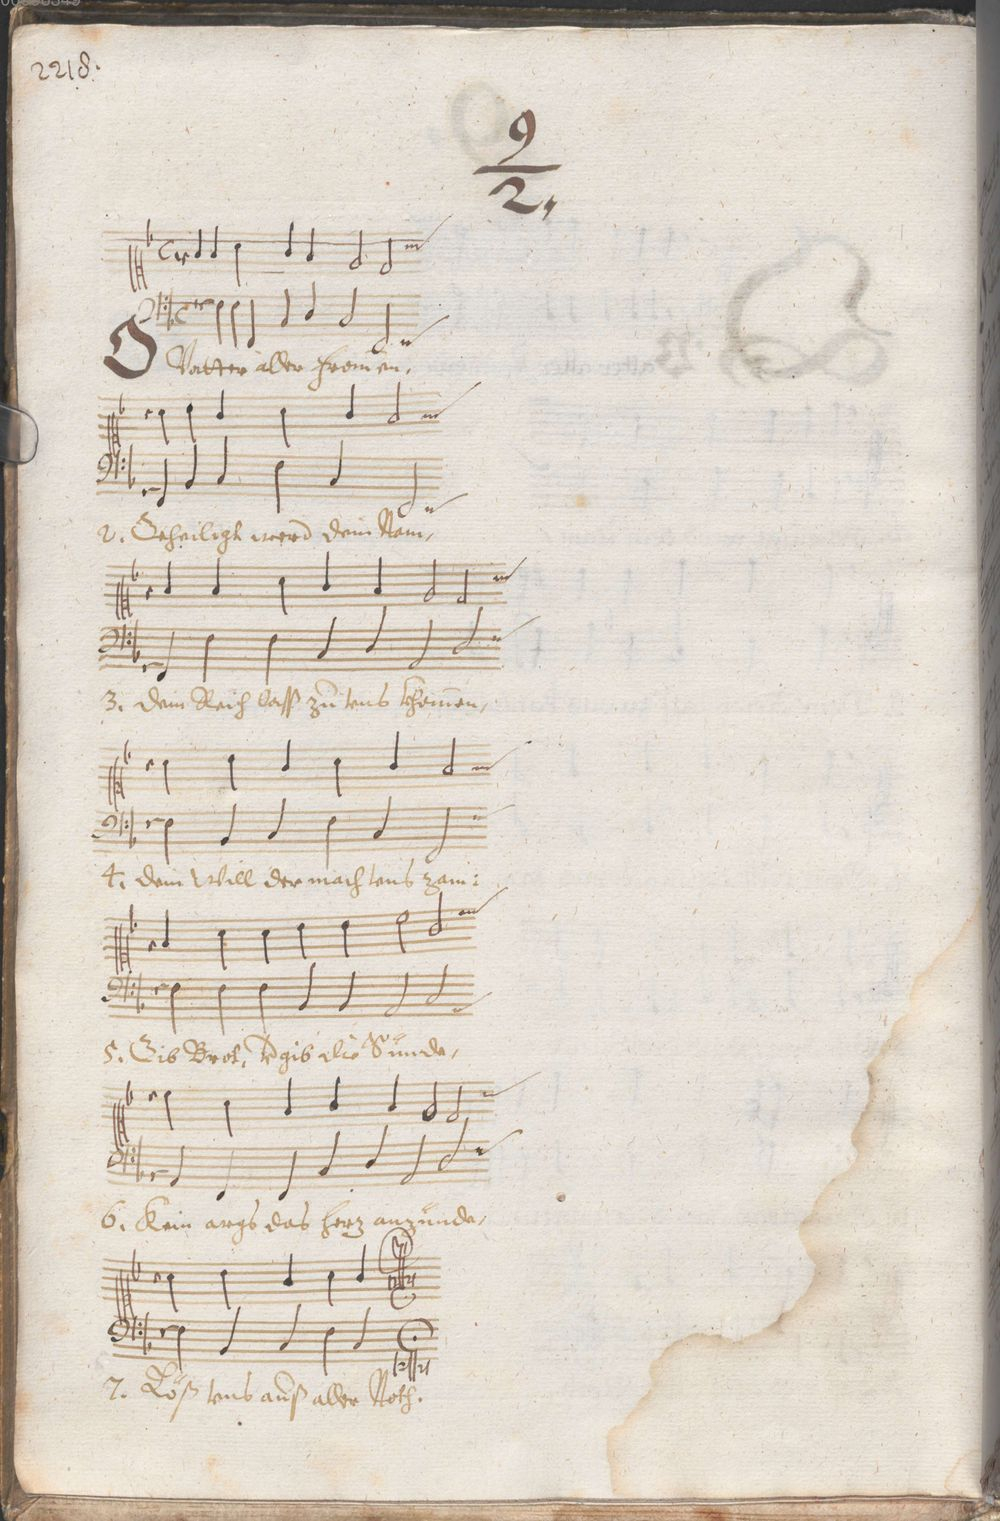 2218.
9
2,
O Vatter aller fromen,
2. Geheiligt werd dein Nam,
3. dein Reich lass zu uns khomen,
4. dein Will der mach uns zam:
5. Gib Brot, vergib die Sünde,
6. Kein args das herz anzünde,
7. Löß uns auß aller Noth.